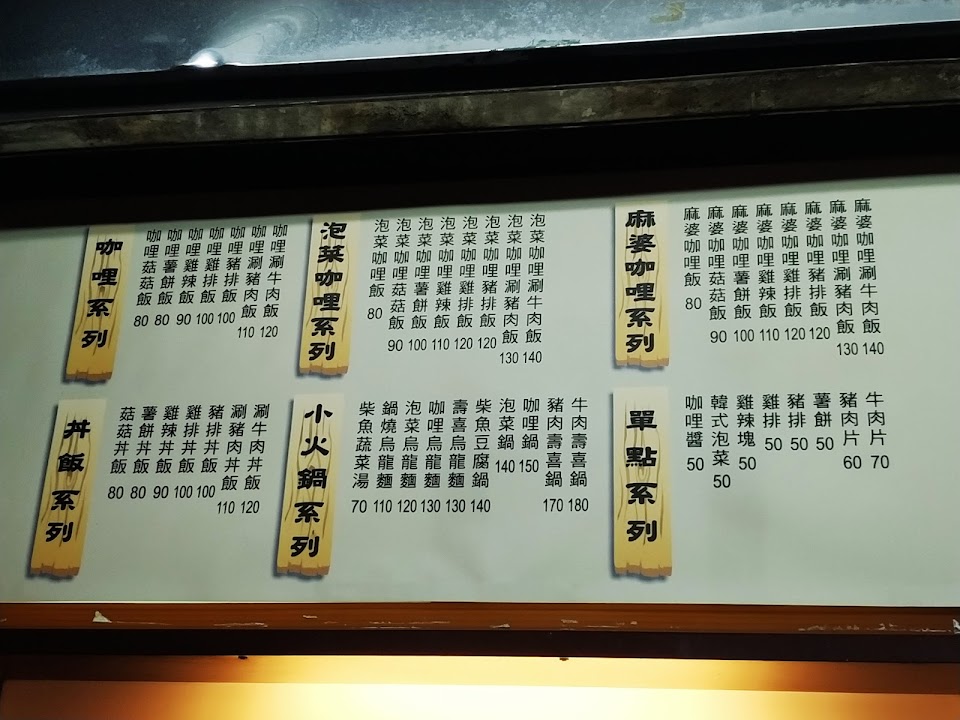 咖哩系列
咖哩菇菇飯 80
咖哩薯餅飯 80
咖哩雞辣飯 90
咖哩雞排飯 100
咖哩豬排飯 100
咖哩涮豬肉飯 110
咖哩涮牛肉飯 120
泡菜咖哩系列
泡菜咖哩飯 80
泡菜咖哩菇菇飯 90
泡菜咖哩薯餅飯 100
泡菜咖哩雞辣飯 110
泡菜咖哩雞排飯 120
泡菜咖哩豬排飯 120
泡菜咖哩涮豬肉飯 130
泡菜咖哩涮牛肉飯 140
麻婆咖哩系列
麻婆咖哩飯 80
麻婆咖哩菇菇飯 90
麻婆咖哩薯餅飯 100
麻婆咖哩雞辣飯 110
麻婆咖哩雞排飯 120
麻婆咖哩豬排飯 120
麻婆咖哩涮豬肉飯 130
麻婆咖哩涮牛肉飯 140
丼飯系列
菇菇丼飯 80
薯餅丼飯 80
雞辣丼飯 90
雞排丼飯 100
豬排丼飯 100
涮豬肉丼飯 110
涮牛肉丼飯 120
小火鍋系列
柴魚蔬菜湯 70
鍋燒烏龍麵 110
泡菜烏龍麵 120
咖哩烏龍麵 130
壽喜烏龍麵 130
柴魚豆腐鍋 140
泡菜鍋 140
咖哩鍋 150
豬肉壽喜鍋 170
牛肉壽喜鍋 180
單點系列
咖哩醬 50
韓式泡菜 50
雞辣塊 50
雞排 50
豬排 50
薯餅 50
豬肉片 60
牛肉片 70